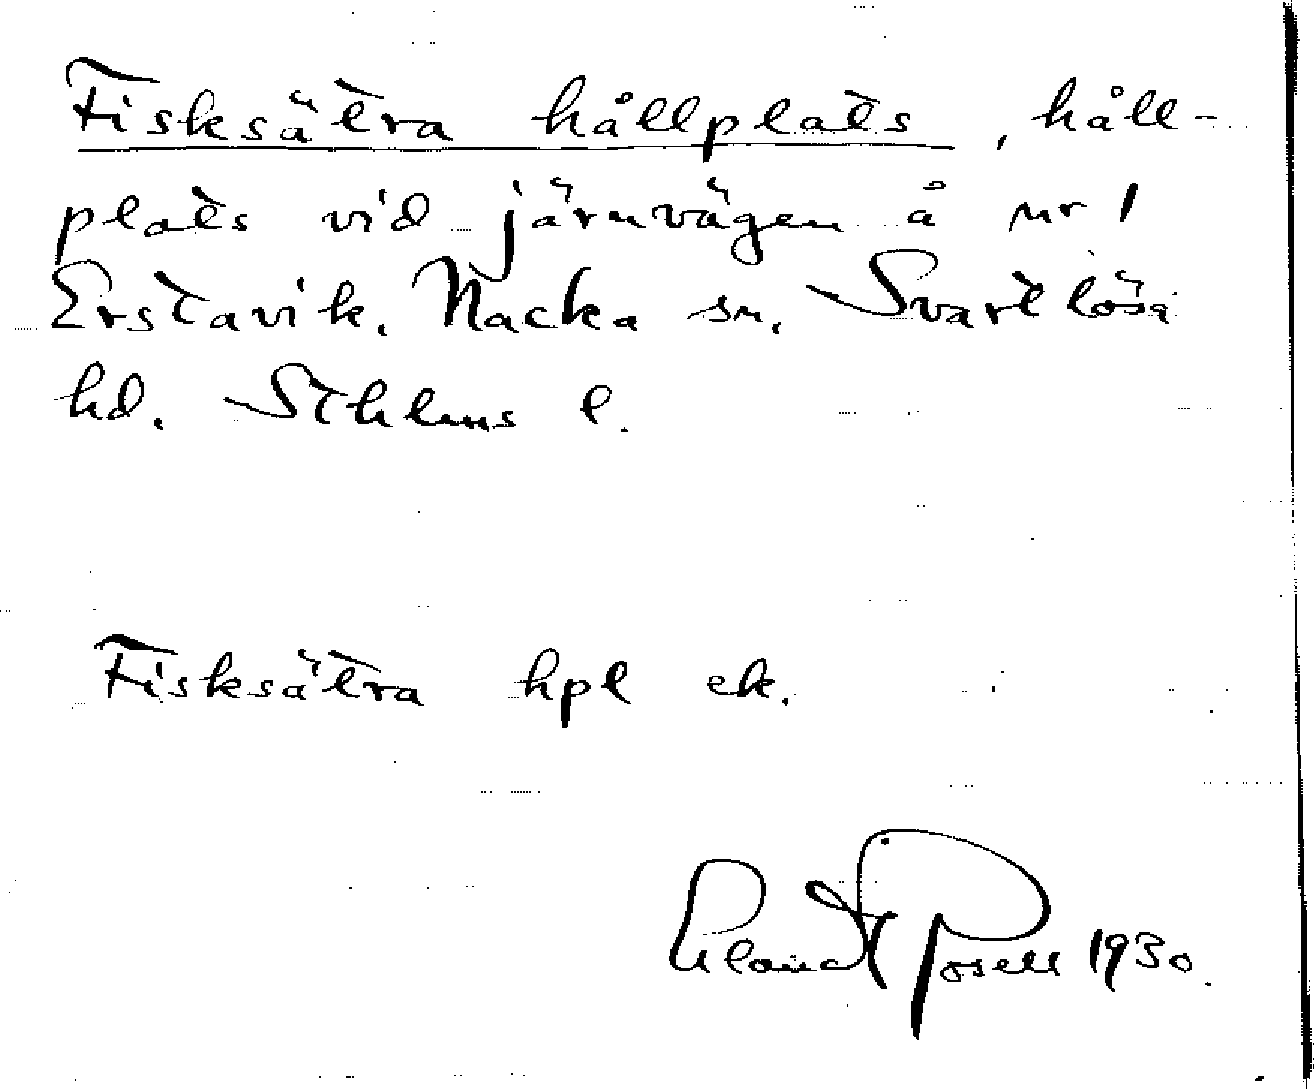 Fisksätra hållplats, håll-
plats vid järnvägen å nr 1
Erstavik. Nacka sn. Svartlösa
hd. Sthlms l.
Fisksätra hpl ek.
Rosell 1930.